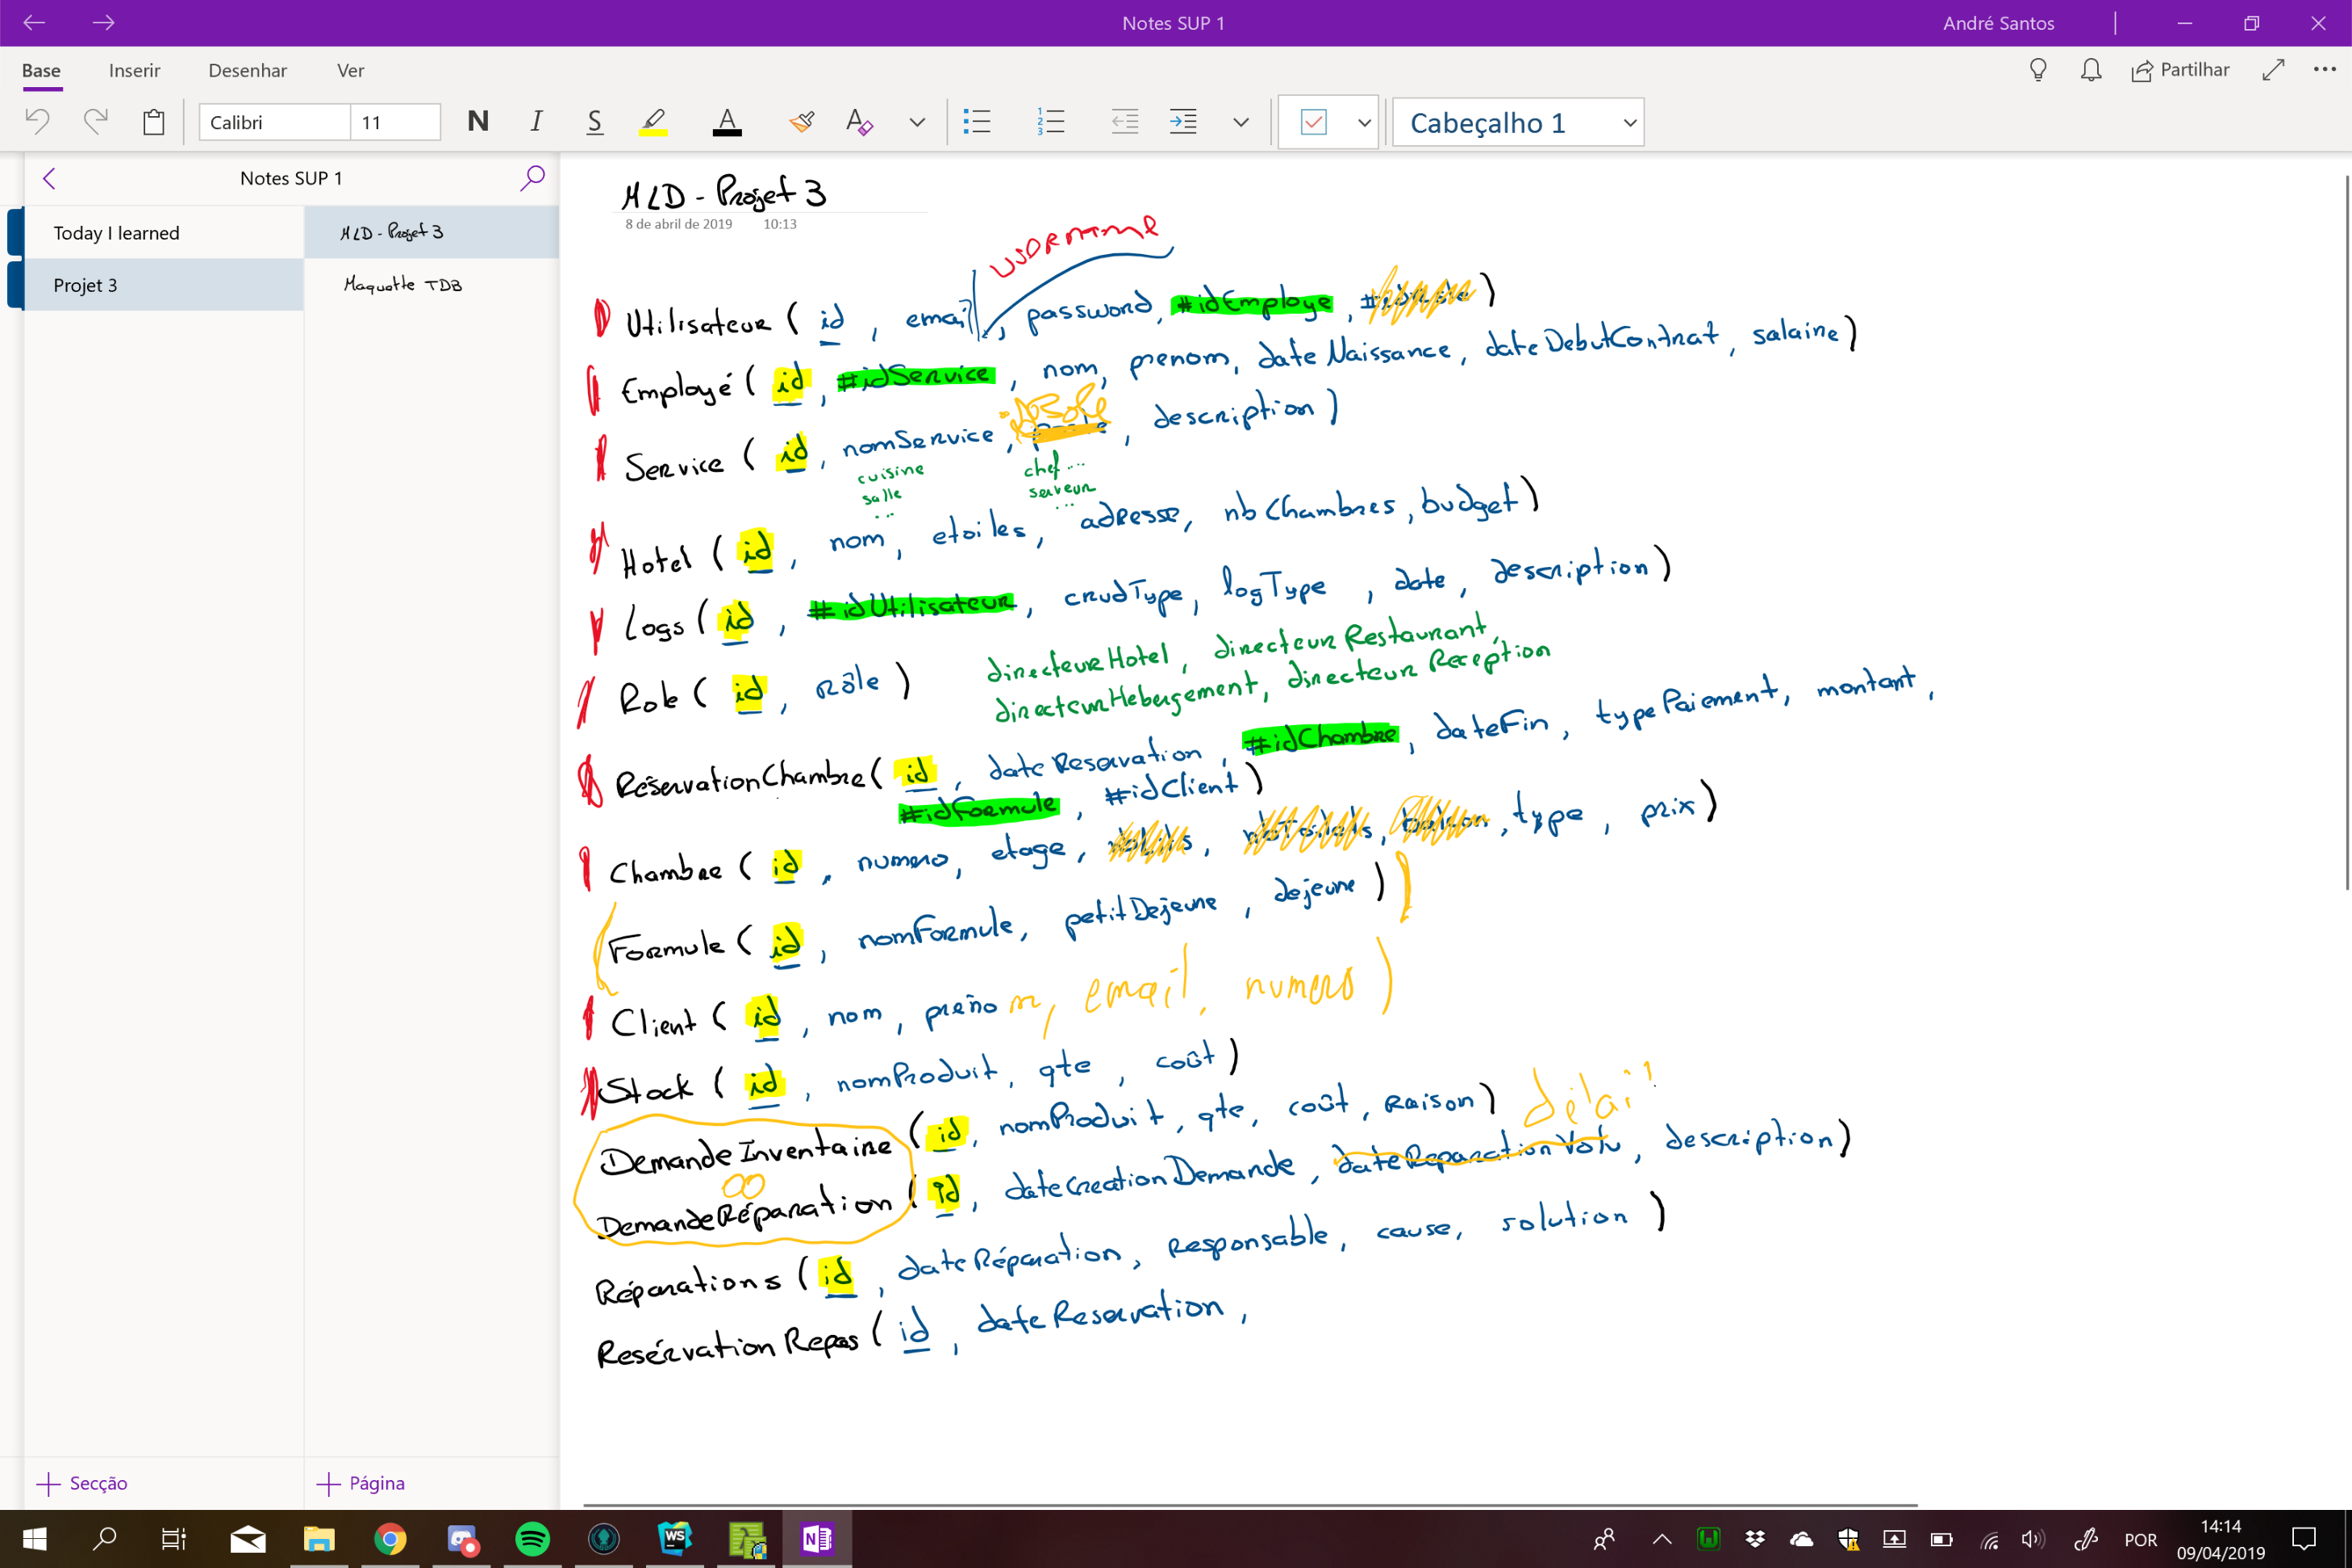 Notes SUP 1
André Santos
Base Inserir Desenhar Ver
Partilhar
Calibri 11 N I S A A Cabeçalho 1
Notes SUP 1
Today I learned
Projet 3
MLD - Projet 3
Maquette TDB
MLD - Projet 3
8 de abril de 2019 10:13
username
Utilisateur ( id , email , password, #idEmploye , )
Employé ( id , #idService , nom, prenom, dateNaissance, dateDebutContrat, salaire)
idRole
Service ( id , nomService , , description )
cuisine chef...
salle serveur
... ...
Hotel ( id , nom , etoiles , adresse, nbChambres, budget)
Logs ( id , #idUtilisateur , crudType, logType , date, description)
directeurHotel, directeurRestaurant,
Role ( id , rôle ) directeurHebergement, directeurReception
RéservationChambre( id , dateReservation , #idChambre , dateFin, typePaiement, montant,
#idFormule , #idClient )
Chambre ( id , numero, etage , , , , type , prix )
Formule ( id , nomFormule, petitDejeune , dejeune )
Client ( id , nom , prénom, email, numero )
Stock ( id , nomProduit, qte , coût )
DemandeInventaire ( id , nomProduit, qte, coût, raison) délai
DemandeRéparation ( id , dateCreationDemande, , description)
Réparations ( id , dateRéparation, responsable, cause, solution )
ResérvationRepas ( id , dateReservation ,
Secção
Página
WS
POR
14:14
09/04/2019